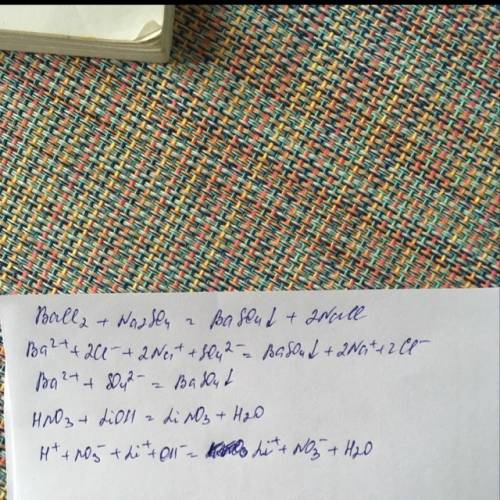 BaCl₂ + Na₂SO₄ = BaSO₄↓ + 2NaCl
Ba²⁺ + 2Cl⁻ + 2Na⁺ + SO₄²⁻ = BaSO₄↓ + 2Na⁺ + 2Cl⁻
Ba²⁺ + SO₄²⁻ = BaSO₄↓
HNO₃ + LiOH = LiNO₃ + H₂O
H⁺ + NO₃⁻ + Li⁺ + OH⁻ = Li⁺ + NO₃⁻ + H₂O